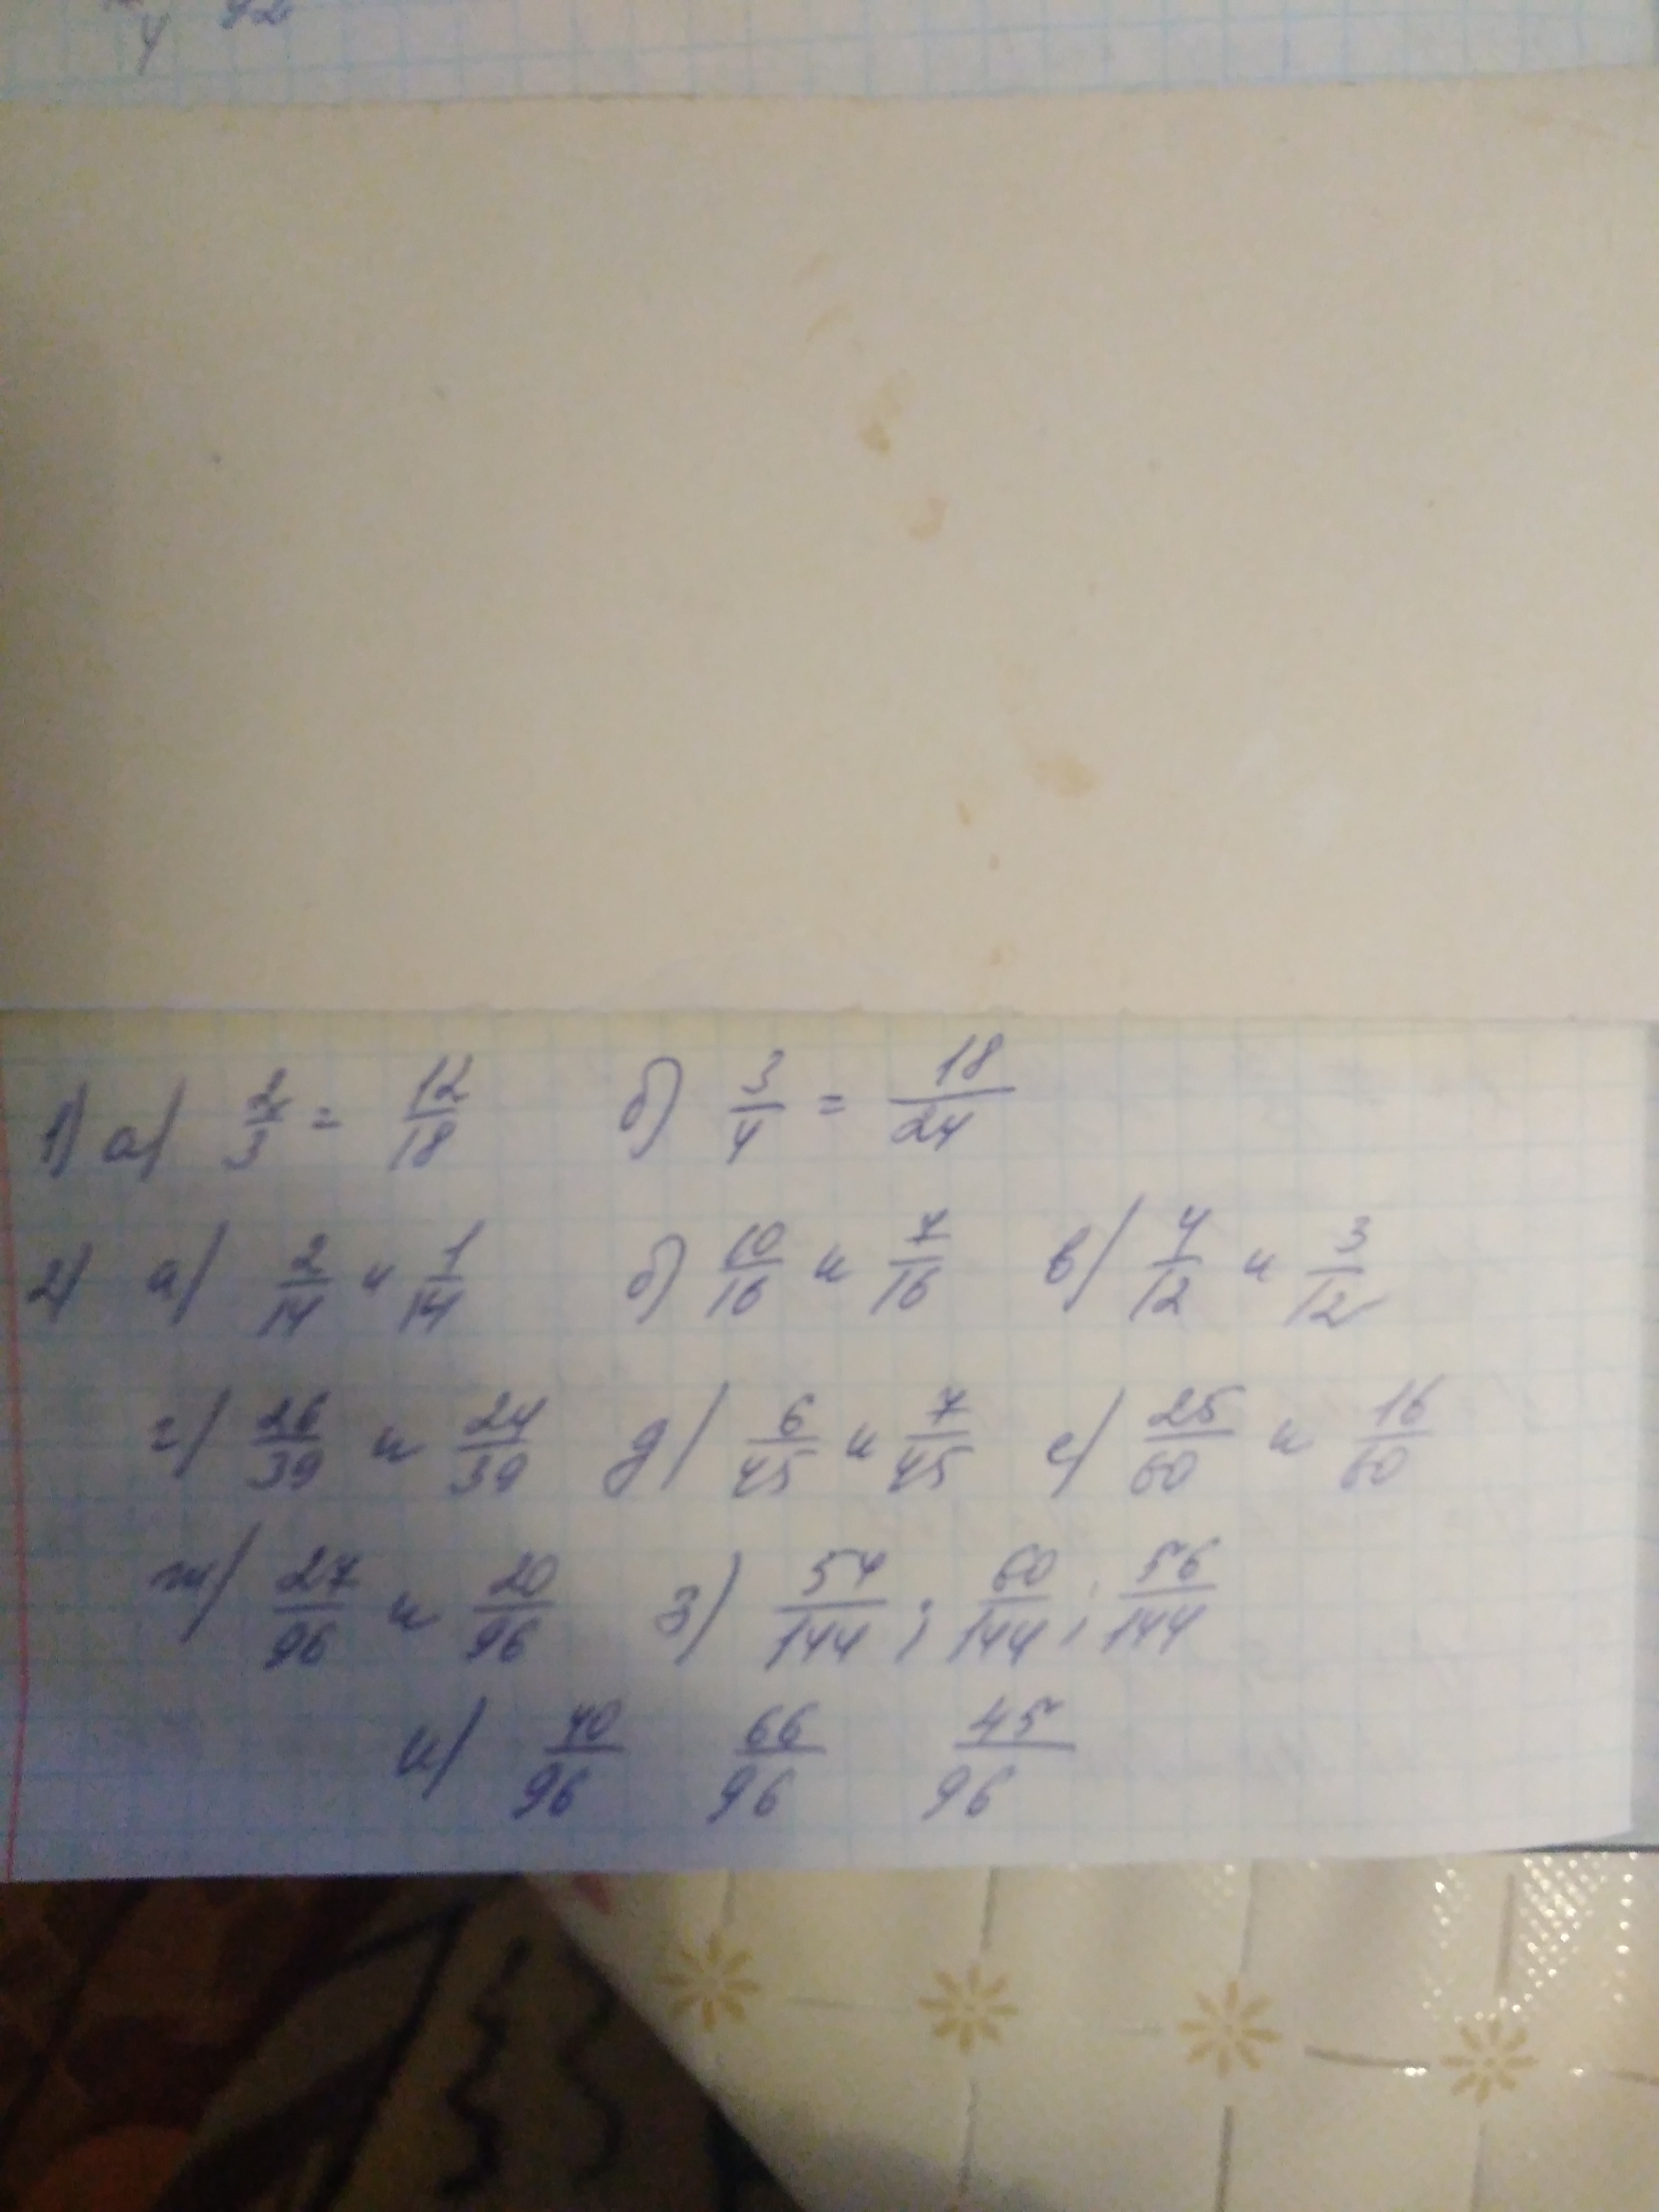 1) а) 2/3 = 12/18 б) 3/4 = 18/24
2) а) 2/14 и 1/14 б) 10/16 и 7/16 в) 4/12 и 3/12
г) 26/39 и 24/39 д) 6/45 и 7/45 е) 25/60 и 16/60
ж) 27/96 и 20/96 з) 54/144 ; 60/144 ; 56/144
и) 40/96 66/96 45/96